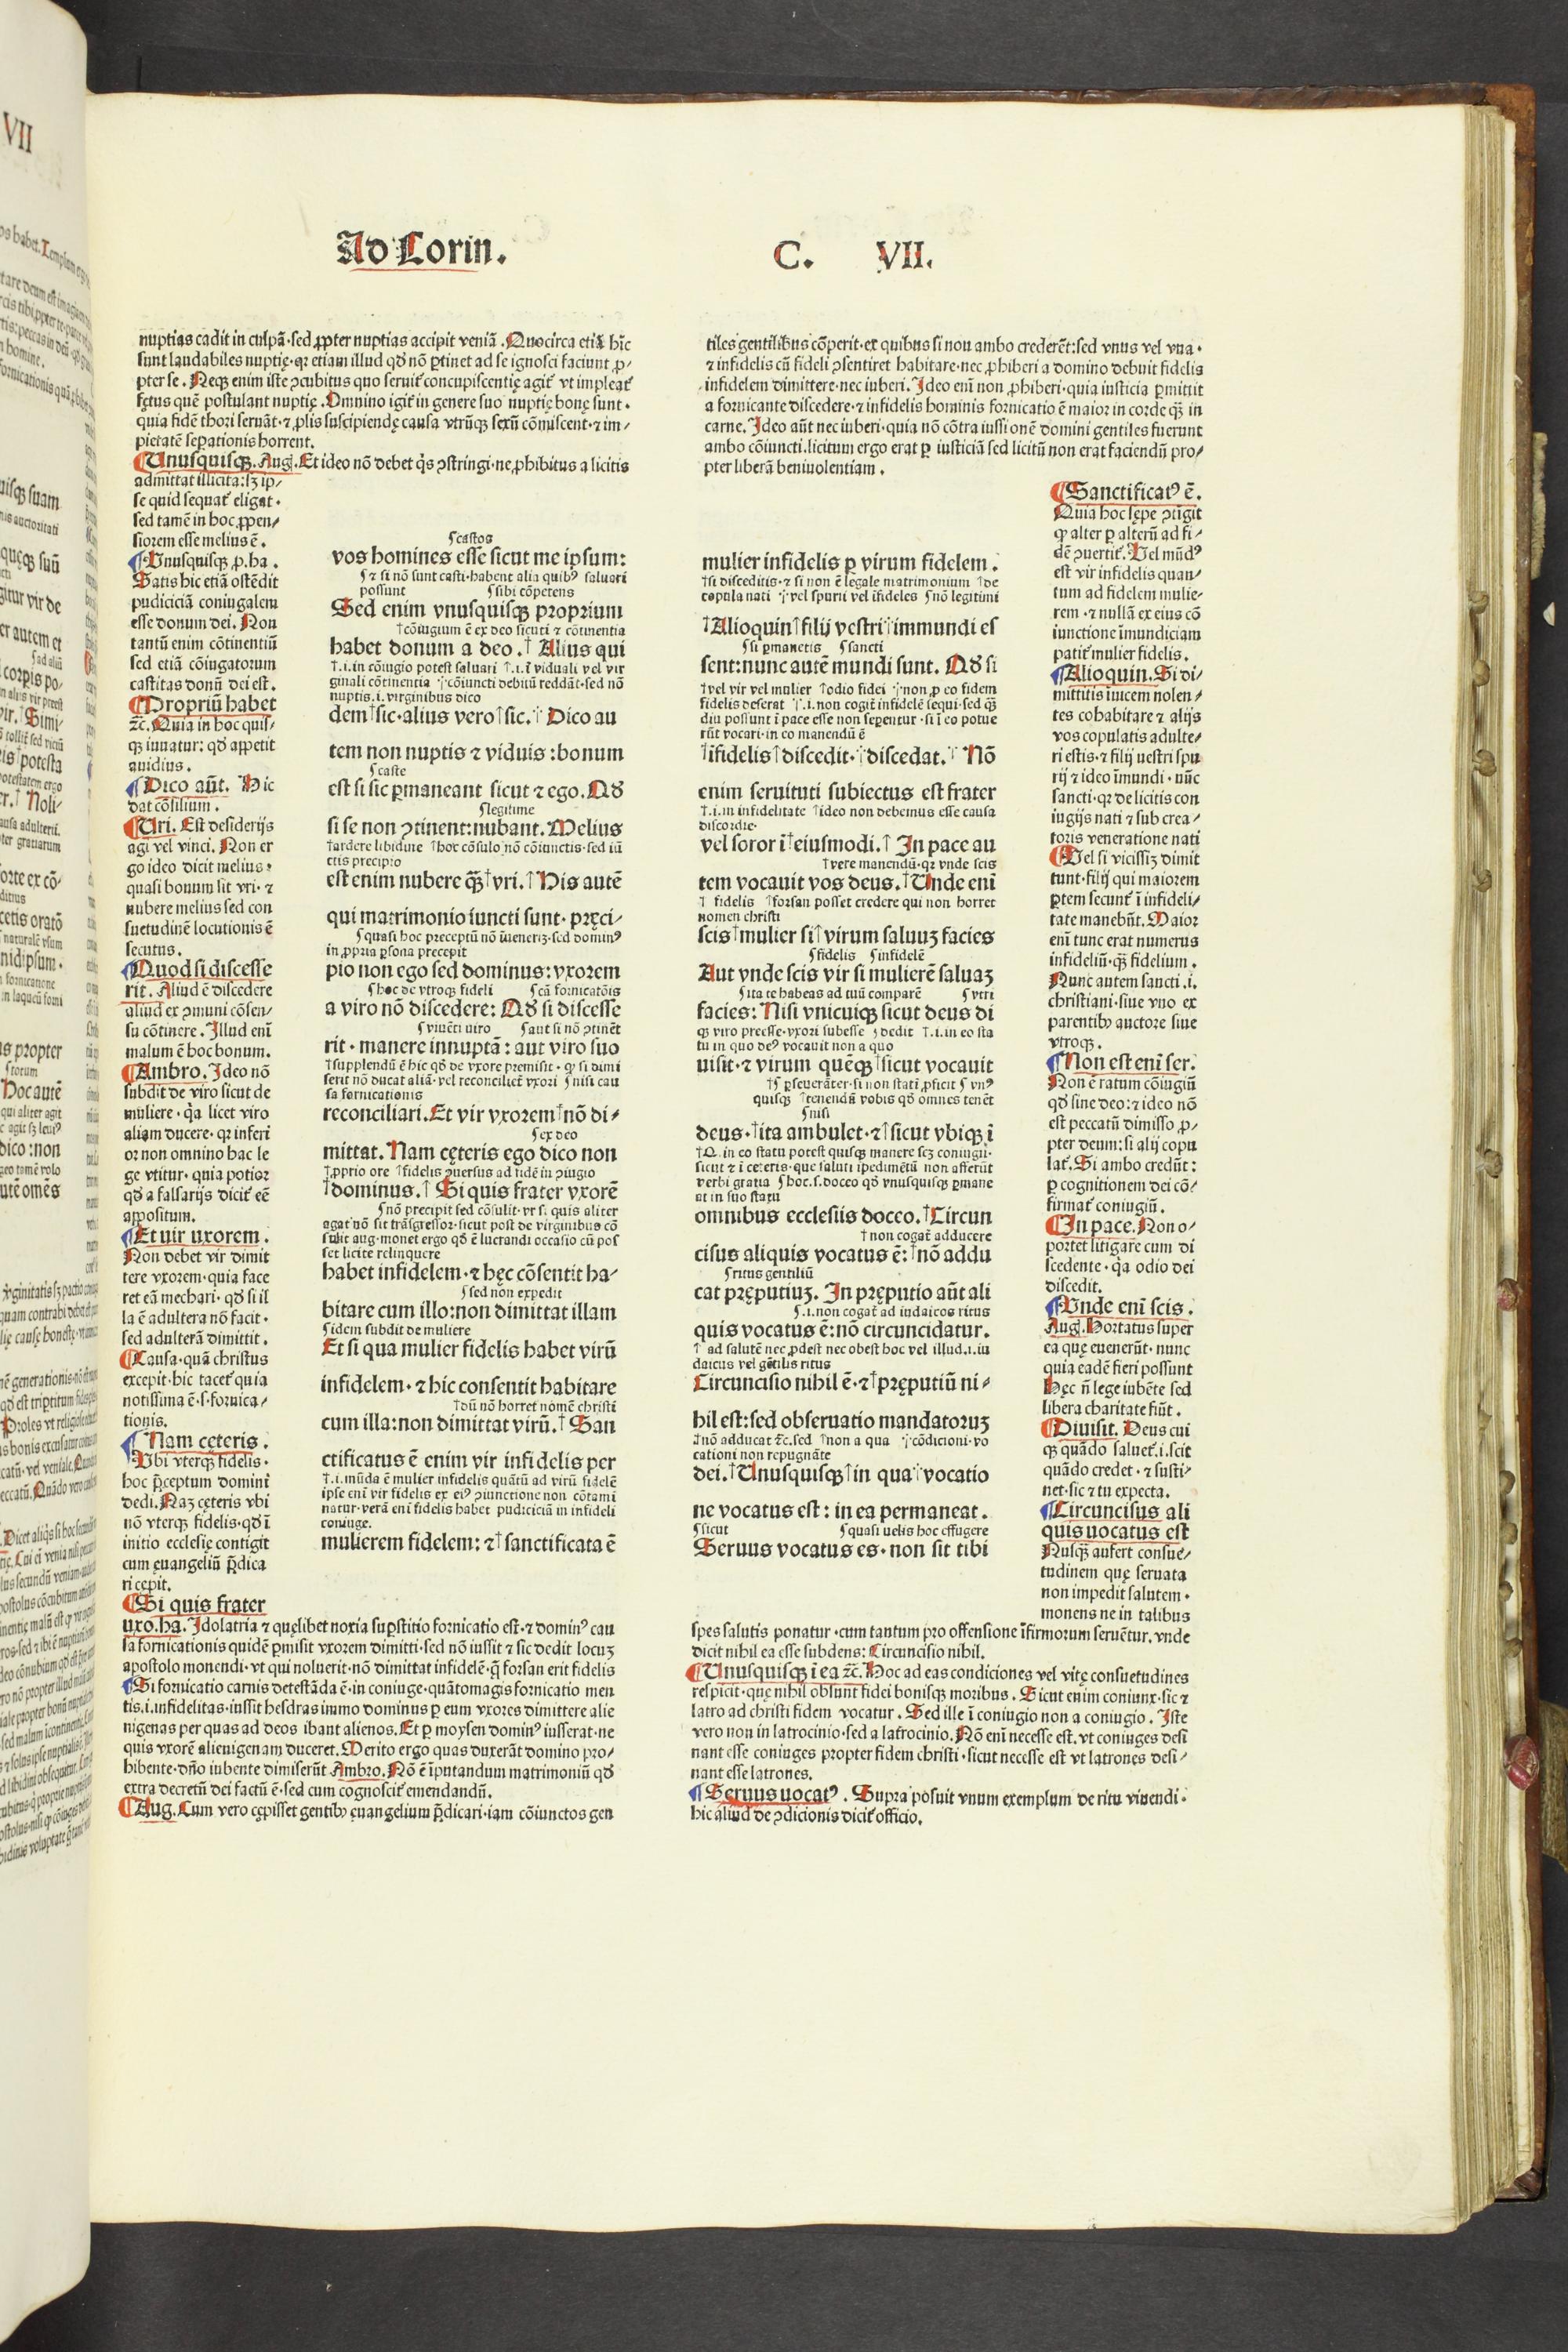 Ad Corin.
C. VII.
nuptias cadit in culpā·sed ꝓpter nuptias accipit veniā. Quocirca etiā hic
sunt laudabiles nuptię·qꝛ etiam illud qđ nō ꝑtinet ad se ignosci faciunt ꝓ-
pter se. Neqꝫ enim iste ꝯcubitus quo seruit concupiscentię agit̄ vt impleat̄
fętus quē postulant nuptię. Omnino igit̄ in genere suo nuptię bonę sunt·
quia fidē thori seruāt·⁊ ꝓlis suscipiendę causa vtrūqꝫ sexū cōmiscent·⁊ im-
pietatē seꝑationis horrent.
Unusquisqꝫ. Aug. Et ideo nō debet q̇s ꝯstringi·ne ꝓhibitus a licitis
admittat illicita: sꝫ ip-
se quid sequat̄ eligat·
sed tamē in hoc ꝓpen-
siorem esse melius ē.
Unusquisqꝫ ꝓ.ha.
Satis hic etiā ostēdit
pudiciciā coniugalem
esse donum dei. Non
tantū enim cōtinentiū
sed etiā cōiugatorum
castitas donū dei est.
Propriū habet
⁊c. Quia in hoc quis-
qꝫ iuuatur: qđ appetit
auidius.
Dico aūt. Hic
dat cōsilium.
Uri. Est desiderijs
agi vel vinci. Non er
go ideo dicit melius·
quasi bonum sit vri·⁊
nubere melius sed con
suetudinē locutionis ē
secutus.
Quod si discesse
rit. Aliud ē discedere
aliud ex ꝯmuni cōsen-
su cōtinere. Illud enī
malum ē hoc bonum.
Ambro. Ideo nō
subdit de viro sicut de
muliere·q̇a licet viro
aliam ducere·qꝛ inferi
or non omnino hac le
ge vtitur·quia potior
qđ a falsarijs dicit̄ eē
appositum.
Et uir uxorem.
Non debet vir dimit
tere vxorem·quia face
ret eā mechari·qđ si il
la ē adultera nō facit·
sed adulterā dimittit.
Causa·quā christus
excepit·hic tacet̄ quia
notissima ē·s·fornica-
tionis.
Nam cęteris.
Ubi vterqꝫ fidelis·
hoc p̄ceptum domini
dedi. Naꝫ cęteris vbi
nō vterqꝫ fidelis·qđ ī
initio ecclesię contigit
cum ęuangeliū p̄dica
ri cępit.
Si quis frater
uxo.ha. Idolatria ⁊ quęlibet noxia suꝑstitio fornicatio est·⁊ dominꝰ cau
sa fornicationis quidē ꝑmisit vxorem dimitti·sed nō iussit ⁊ sic dedit locuꝫ
apostolo monendi·vt qui noluerit·nō dimittat infidelē·q̄ forsan erit fidelis
Si fornicatio carnis detestāda ē·in coniuge·quātomagis fornicatio men
tis.i.infidelitas·iussit hesdras immo dominus ꝑ eum vxores dimittere alie
nigenas per quas ad deos ibant alienos. Et ꝑ moysen dominꝰ iusserat·ne
quis vxorē alienigenam duceret. Merito ergo quas duxerāt domino pro-
hibente·dn̄o iubente dimiserūt Ambro. Nō ē īputandum matrimoniū qđ
extra decretū dei factū ē·sed cum cognoscit̄ emendandū.
Aug. Cum vero cępisset gentibꝰ ęuangelium p̄dicari·iam cōiunctos gen
ꞅcastos
vos homines esse sicut me ipsum:
ꞅ⁊ si nō sunt casti·habent alia quibꝰ saluari
possunt ꞅsibi cōpetens
Sed enim vnusquisqꝫ proprium
†cōiugium ē ex deo sicuti ⁊ cōtinentia
habet donum a deo.† Alius qui
†.i.in cōiugio potest saluari †.i.ī viduali vel vir
ginali cōtinentia ·ꞅ·cōiuncti debitū reddāt·sed nō
nuptis.i.virginibus dico
dem†sic·alius vero†sic.† Dico au
tem non nuptis ⁊ viduis:bonum
ꞅcaste
est si sic ꝑmaneant sicut ⁊ ego. Qđ
ꞅlegitime
si se non ꝯtinent:nubant. Melius
†ardere libidine †hoc cōsulo nō cōiunctis·sed iū
ctis precipio
est enim nubere q̄ꝫ†vri.† His autē
qui matrimonio iuncti sunt·pręci-
ꞅquasi hoc preceptū nō īuenerīꝫ·sed dominꝰ
in ꝓpria ꝑsona precepit
pio non ego sed dominus:vxorem
ꞅhoc de vtroqꝫ fideli ꞅcā fornicatōis
a viro nō discedere: Qđ si discesse
ꞅviuēti viro ꞅaut si nō ꝯtinēt
rit·manere innuptā:aut viro suo
†supplendū ē hic qđ de vxore premisit·qꝙ si dimi
serit nō ducat aliā·vel reconcilict̄ vxori ꞅnisi cau
sa fornicationis
reconciliari. Et vir vxorem†nō di-
ꞅex deo
mittat. Nam cęteris ego dico non
†ꝓprio ore †fidelis ꝯuersus ad fidē in ꝯiugio
†dominus.† Si quis frater vxorē
ꞅnō precipit sed cōsulit·vt si quis aliter
agat nō sit trāsgressor·sicut post de virginibus cō
sulit aug·monet ergo qđ ē lucrandi occasio cū pos
set licite relinquere
habet infidelem·⁊ hęc cōsentit ha-
ꞅsed non expedit
bitare cum illo:non dimittat illam
ꞅidem subdit de muliere
Et si qua mulier fidelis habet virū
infidelem·⁊ hic consentit habitare
†dū nō horret nomē christi
cum illa:non dimittat virū.† San
ctificatus ē enim vir infidelis per
†.i.mūda ē mulier infidelis quātū ad virū fidelē
ipse enī vir fidelis ex eiꝰ ꝯiunctione non cōtami
natur·verā enī fidelis habet pudiciciā in infideli
coniuge.
mulierem fidelem:⁊†sanctificata ē
tiles gentilibus cōperit·ex quibus si non ambo crederēt:sed vnus vel vna·
⁊ infidelis cū fideli ꝯsentiret habitare·nec ꝓhiberi a domino debuit fidelis
infidelem dimittere·nec iuberi. Ideo enī non ꝓhiberi·quia iusticia ꝑmittit
a fornicante discedere·⁊ infidelis hominis fornicatio ē maior in corde q̄ꝫ in
carne. Ideo aūt nec iuberi·quia nō cōtra iussionē domini gentiles fuerunt
ambo cōiuncti.licitum ergo erat ꝑ iusticiā sed licitū non erat faciendū pro-
pter liberā beniuolentiam.
mulier infidelis ꝑ virum fidelem.
†si disceditis·⁊ si non ē legale matrimonium †de
copula nati ·ꞅ·vel spurii vel īfideles ꞅnō legitimi
†Alioquin†filij vestri†immundi es
ꞅsi ꝑmanetis ꞅsancti
sent:nunc autē mundi sunt. Qđ si
†vel vir vel mulier †odio fidei ·ꞅ·non ꝓ eo fidem
fidelis deserat †.i.non cogit̄ infidelē sequi·sed q̄ꝫ
diu possunt ī pace esse non seꝑentur·si ī eo potue
rūt vocari·in eo manendū ē
†ifidelis†discedit·†discedat.† Nō
enim seruituti subiectus est frater
†.i.in infidelitate †ideo non debemus esse causa
discordie·
vel soror ī†eiusmodi.† In pace au
†vere manendū·qꝛ vnde scis
tem vocauit vos deus.†Unde enī
† fidelis †forsan posset credere qui non horret
nomen christi
scis†mulier si†virum saluuꝫ facies
ꞅfidelis ꞅinfidelē
Aut vnde scis vir si mulierē saluaꝫ
ꞅita te habeas ad tuū comparē ꞅvtri
facies: Nisi vnicuiqꝫ sicut deus di
qꝫ viro preesse·vxori subesse ꞅdedit †.i.in eo sta
tu in quo deꝰ vocauit non a quo
uisit·⁊ virum quēqꝫ†sicut vocauit
†ꞅ ꝑseuerāter·si non stati ꝓficit ꞅ vnꝰ
quisqꝫ †tenendū vobis qđ omnes tenēt
ꞅnisi
deus·†ita ambulet·⁊†sicut vbiqꝫ ī
†Q. in eo statu potest quisqꝫ manere scꝫ coniugii·
sicut ⁊ ī ceteris·que saluti īpedimētū non afferūt
verbi gratia ꞅhoc.s.doceo qđ vnusquisqꝫ ꝑmane
at in suo statu
omnibus ecclesiis doceo.†Circun
† non cogat̄ adducere
cisus aliquis vocatus ē:†nō addu
ꞅritus gentiliū
cat pręputiuꝫ. In pręputio aūt ali
ꞅ.i.non cogat̄ ad iudaicos ritus
quis vocatus ē:nō circuncidatur.
† ad salutē nec ꝓdest nec obest hoc vel illud.i.iu
daicus vel gētilis ritus
Circuncisio nihil ē·⁊†pręputiū ni-
hil est:sed obseruatio mandatoruꝫ
†nō adducat ⁊c.sed †non a qua ·ꞅ·cōdicioni·vo
cationi non repugnāte
dei.†Unusquisqꝫ†in qua†vocatio
ne vocatus est:in ea permaneat.
ꞅsicut ꞅquasi uelis hoc effugere
Seruus vocatus es·non sit tibi
Sanctificatꝰ ē.
Quia hoc sępe ꝯtigit
ꝙ alter ꝑ alterū ad fi-
dē ꝯuertit̄. Uel mūdꝰ
est vir infidelis quan-
tum ad fidelem mulie-
rem·⁊ nullā ex eius cō
iunctione īmundiciam
patit̄ mulier fidelis.
Alioquin. Si di-
mittitis īuicem nolen-
tes cohabitare ⁊ alijs
vos copulatis adulte-
ri estis·⁊ filij uestri spu
rij ⁊ ideo īmundi·nūc
sancti·qꝛ de licitis con
iugijs nati ⁊ sub crea-
toris veneratione nati
Uel si vicissiꝫ dimit
tunt·filij qui maiorem
ꝑtem secunt̄ ī infideli-
tate manebūt. Maior
enī tunc erat numerus
infideliū·q̄ꝫ fidelium.
Nunc autem sancti.i.
christiani·siue vno ex
parentibꝰ auctore siue
vtroqꝫ.
Non est enī ser.
Non ē ratum cōiugiū
qđ sine deo:⁊ ideo nō
est peccatū dimisso ꝓ-
pter deum:si alij copu
lat̄. Si ambo credūt:
ꝑ cognitionem dei cō-
firmat̄ coniugiū.
In pace. Non o-
portet litigare cum di
scedente·q̇a odio dei
discedit.
Unde enī scis.
Aug. Hortatus super
ea quę euenerūt·nunc
quia eadē fieri possunt
Hęc n̄ lege iubēte sed
libera charitate fiūt.
Diuisit. Deus cui
qꝫ quādo saluet̄.i.scit
quādo credet·⁊ susti-
net·sic ⁊ tu expecta.
Circuncisus ali
quis uocatus est
Nusq̄ꝫ aufert consue-
tudinem quę seruata
non impedit salutem·
monens ne in talibus
spes salutis ponatur·cum tantum pro offensione īfirmorum seruētur.vnde
dicit nihil ea esse subdens: Circuncisio nihil.
Unusquisqꝫ ī ea ⁊c. Hoc ad eas condiciones vel vitę consuetudines
respicit·quę nihil obsunt fidei bonisqꝫ moribus. Sicut enim coniunx·sic ⁊
latro ad christi fidem vocatur. Sed ille ī coniugio non a coniugio. Iste
vero non in latrocinio·sed a latrocinio. Nō enī necesse est.vt coniuges desi
nant esse coniuges propter fidem christi·sicut necesse est vt latrones desi-
nant esse latrones.
Seruus uocatꝰ. Supra posuit vnum exemplum de ritu viuendi·
hic aliud de ꝯdicionis dicit̄ officio.